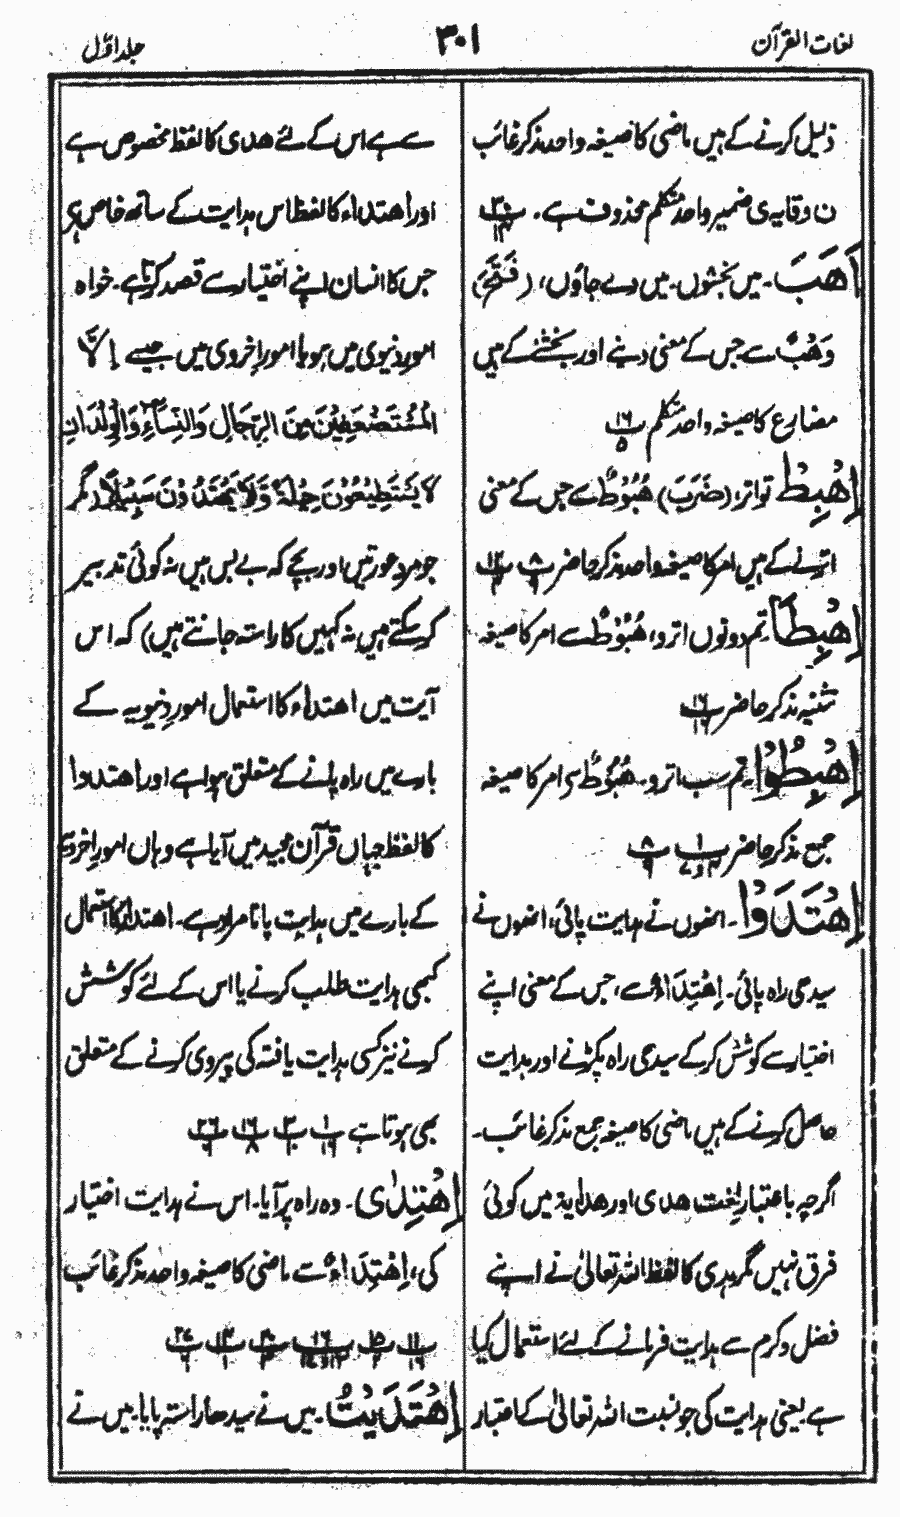 لغات القرآن
۳۰۱
جلد اوّل
ذلیل کرنے کے ہیں ماضی کا صیغہ واحد مذکر غائب
ن وقایہ ی ضمیر واحد متکلم محذوف ہے۔ پ۳۰ ۱۴
اَهَبَ۔ میں بخشوں۔ میں دے جاؤں، (فَتَحَ)
وَهْبٌ سے جس کے معنی دینے اور بخشنے کے ہیں
مضارع کا صیغہ واحد متکلم پ۱۶ ۵
اِهْبِطْ تو اتر، (ضَرَبَ) هُبُوْطٌ سے جس کے معنی
اترنے کے ہیں امر کا صیغہ واحد مذکر حاضر پ۸ ۹ پ۱۲ ۴
اِهْبِطَا تم دونوں اترو، هُبُوْطٌ سے امر کا صیغہ
تثنیہ مذکر حاضر پ۱۶ ۱۶
اِهْبِطُوْا۔ تم سب اترو۔ هُبُوْطٌ سے امر کا صیغہ
جمع مذکر حاضر پ۱ ۴ و ۷ پ۸ ۹
اِهْتَدَوْا۔ انھوں نے ہدایت پائی، انھوں نے
سیدھی راہ پائی۔ اِهْتِدَاءٌ سے، جس کے معنی اپنے
اختیار سے کوشش کرکے سیدھی راہ پکڑنے اور ہدایت
حاصل کرنے کے ہیں ماضی کا صیغہ جمع مذکر غائب۔
اگرچہ باعتبار لغت هدی اور هدایة میں کوئی
فرق نہیں مگر ہدی کا لفظ اللہ تعالیٰ نے اپنے
فضل وکرم سے ہدایت فرمانے کے لئے استعمال کیا
ہے یعنی ہدایت کی جو نسبت اللہ تعالیٰ کے اعتبار
سے ہے اس کے لئے هدی کا لفظ مخصوص ہے
اور اهتداء کا لفظ اس ہدایت کے ساتھ خاص ہے
جس کا انسان اپنے اختیار سے قصد کرتا ہے۔ خواہ
امور دنیوی میں ہو یا امور اخروی میں جیسے اِلَّا
الْمُسْتَضْعَفِيْنَ مِنَ الرِّجَالِ وَالنِّسَآءِ وَالْوِلْدَانِ
لَا يَسْتَطِيْعُوْنَ حِيْلَةً وَّلَا يَهْتَدُوْنَ سَبِيْلًا (مگر
جو مرد عورتیں اور بچے کہ بے بس ہیں نہ کوئی تدبیر
کر سکتے ہیں نہ کہیں کا راستہ جانتے ہیں) کہ اس
آیت میں اهتداء کا استعمال امور دنیویہ کے
بارے میں راہ پانے کے متعلق ہوا ہے اور اهتدوا
کا لفظ جہاں قرآن مجید میں آیا ہے وہاں امور اخروی
کے بارے میں ہدایت پانا مراد ہے۔ اهتداء کا استعمال
کبھی ہدایت طلب کرنے یا اس کے لئے کوشش
کرنے نیز کسی ہدایت یافتہ کی پیروی کرنے کے متعلق
بھی ہوتا ہے
اِهْتَدٰى۔ وہ راہ پر آیا۔ اس نے ہدایت اختیار
کی، اِهْتِدَاءٌ سے ماضی کا صیغہ واحد مذکر غائب
اِهْتَدَيْتُ۔ میں نے سیدھا راستہ پایا۔ میں نے